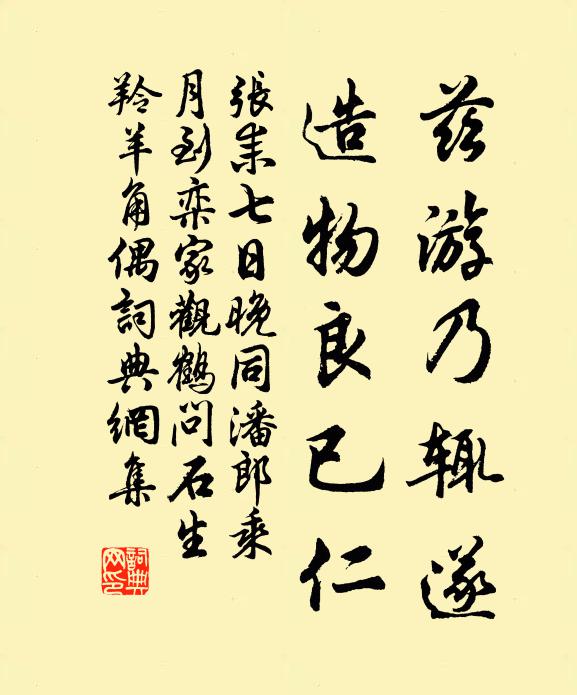 茲游乃輒遂
造物良已仁
張耒七日晚同潘郎乘
月到栾家觀鶴問石生
羚羊角偶詞典網集
詞典
网印